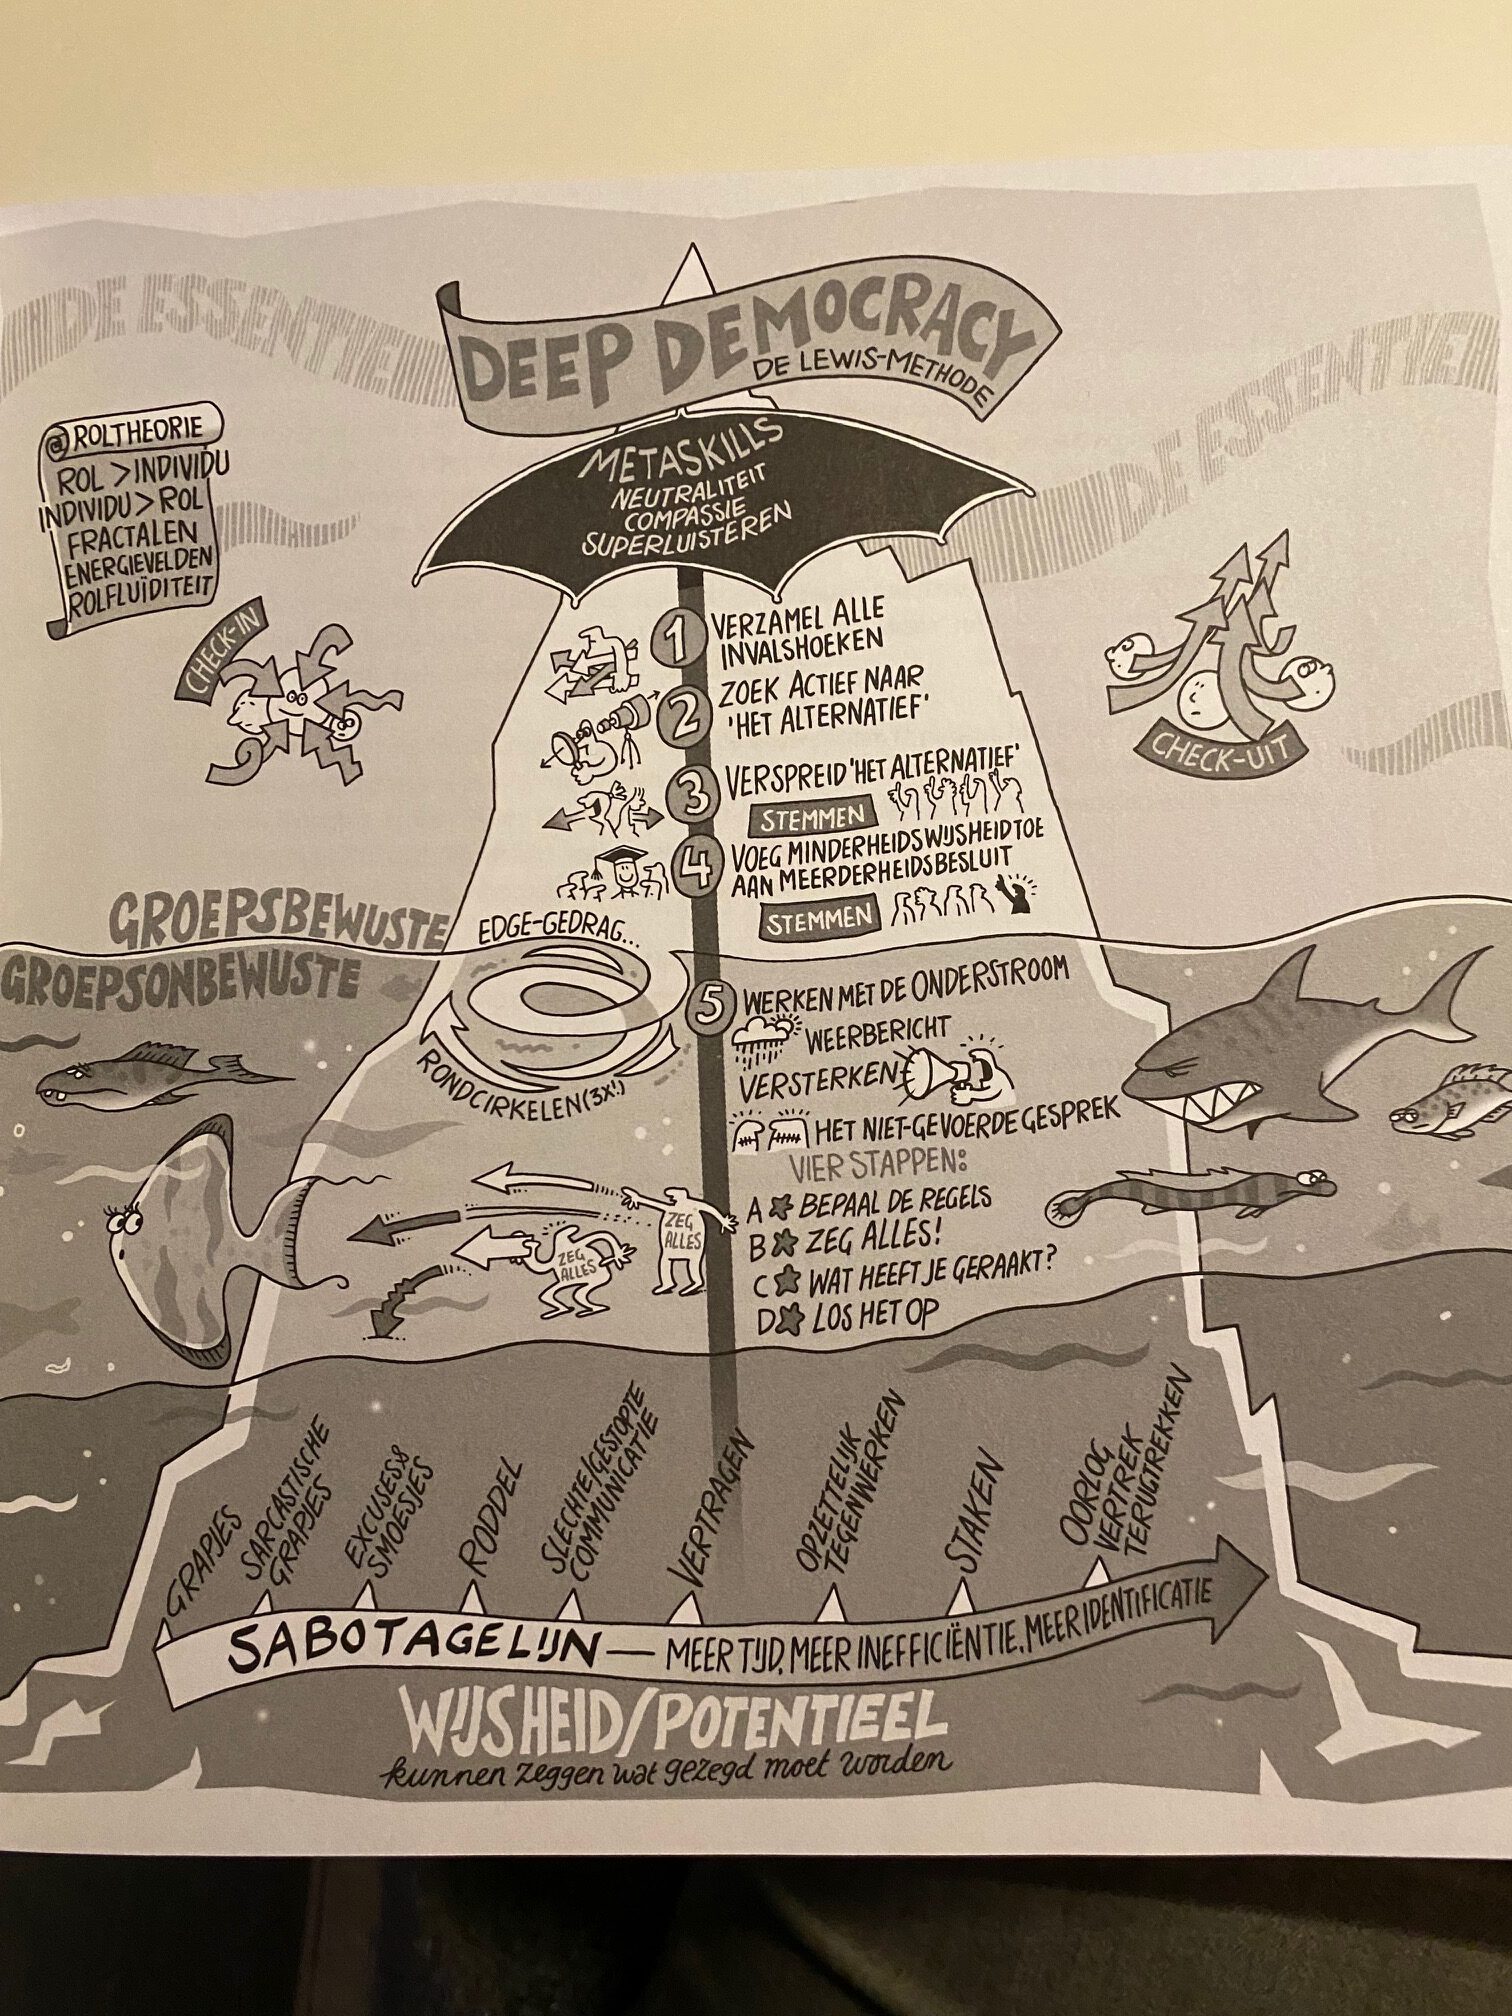 DE ESSENTIE
DEEP DEMOCRACY
DE LEWIS-METHODE
DE ESSENTIE
@ ROLTHEORIE
ROL > INDIVIDU
INDIVIDU > ROL
FRACTALEN
ENERGIEVELDEN
ROLFLUÏDITEIT
METASKILLS
NEUTRALITEIT
COMPASSIE
SUPERLUISTEREN
CHECK-IN
CHECK-UIT
1 VERZAMEL ALLE
INVALSHOEKEN
2 ZOEK ACTIEF NAAR
'HET ALTERNATIEF'
3 VERSPREID 'HET ALTERNATIEF'
STEMMEN
4 VOEG MINDERHEIDSWIJSHEID TOE
AAN MEERDERHEIDSBESLUIT
STEMMEN
GROEPSBEWUSTE
GROEPSONBEWUSTE
EDGE-GEDRAG...
RONDCIRKELEN (3X!)
5 WERKEN MET DE ONDERSTROOM
WEERBERICHT
VERSTERKEN
HET NIET-GEVOERDE GESPREK
VIER STAPPEN:
A BEPAAL DE REGELS
B ZEG ALLES!
C WAT HEEFT JE GERAAKT?
D LOS HET OP
ZEG
ALLES
ZEG
ALLES
GRAPJES
SARCASTISCHE
GRAPJES
EXCUSES &
SMOESJES
RODDEL
SLECHTE/GESTOPTE
COMMUNICATIE
VERTRAGEN
OPZETTELIJK
TEGENWERKEN
STAKEN
OORLOG
VERTREK
TERUGTREKKEN
SABOTAGELIJN — MEER TIJD, MEER INEFFICIËNTIE, MEER IDENTIFICATIE
WIJSHEID/POTENTIEEL
kunnen zeggen wat gezegd moet worden